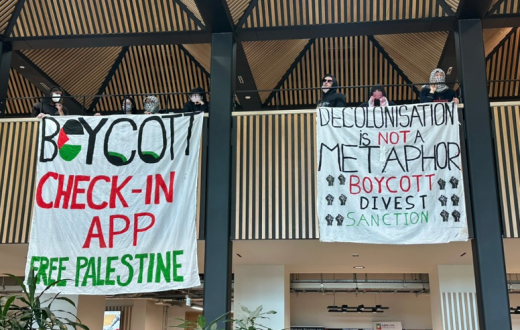 BOYCOTT
CHECK-IN
APP
FREE PALESTINE
DECOLONISATION
is NOT A
METAPHOR
BOYCOTT
DIVEST
SANCTION